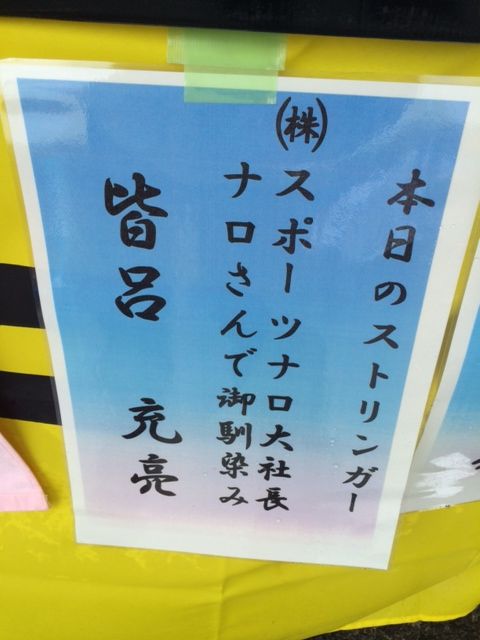 本日のストリンガー
㈱スポーツナロ大社長
ナロさんで御馴染み
皆呂 充亮